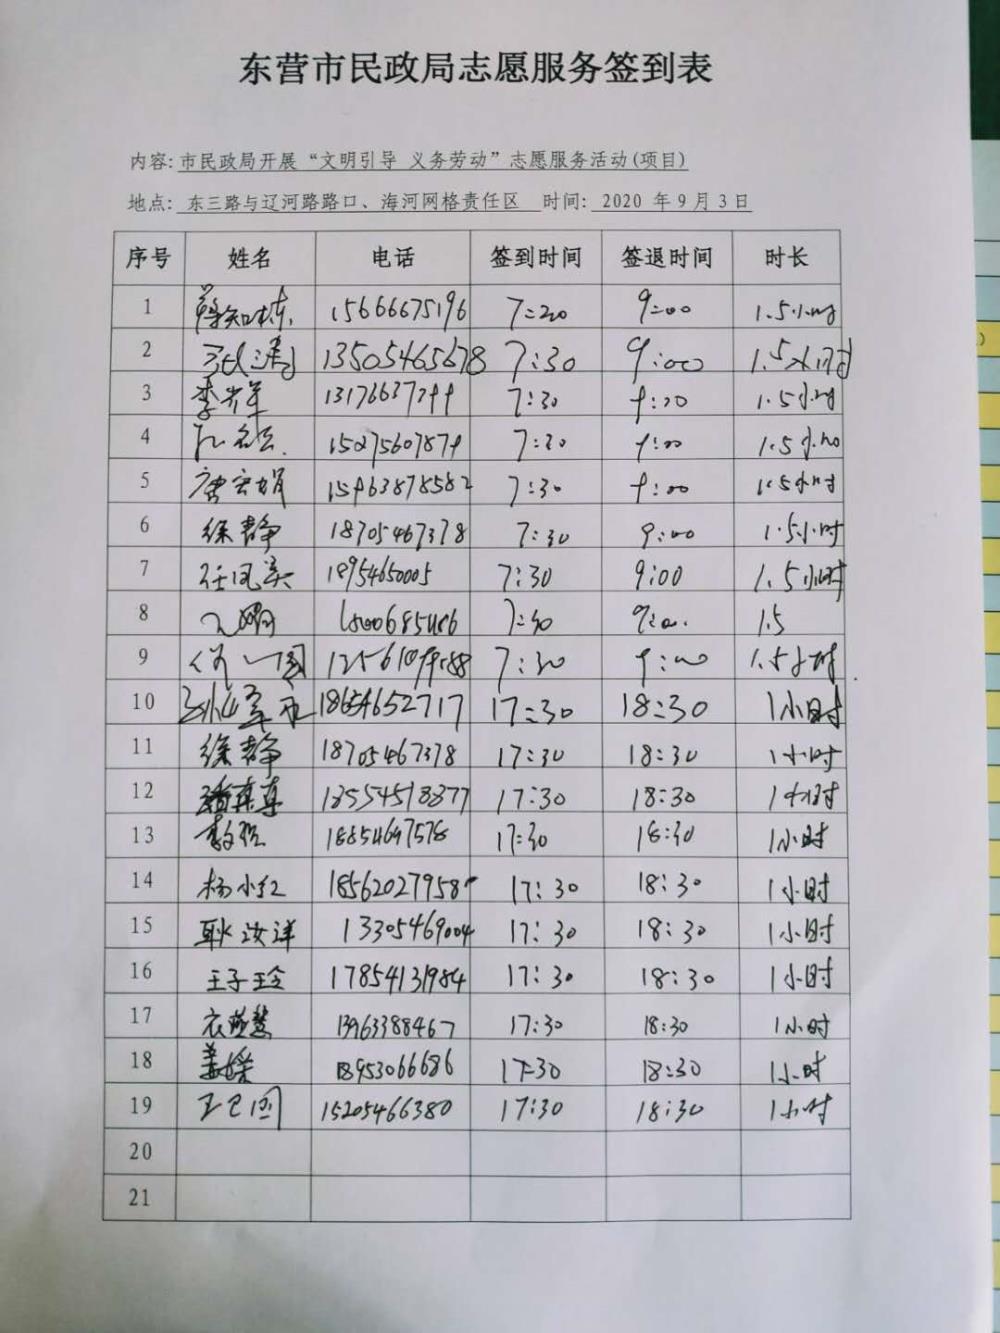 东营市民政局志愿服务签到表
内容: 市民政局开展“文明引导 义务劳动”志愿服务活动(项目)
地点: 东三路与辽河路路口、海河网格责任区 时间: 2020 年9月3日
序号 姓名 电话 签到时间 签退时间 时长
1 15666675196 9:00 1.5小时
2 13505465678 7:30 9:00 1.5小时
3 7:30 1.5小时
4 9:00
5 唐宏娟 15963878582 7:30 9:00 1.5小时
6 徐静 18705467378 7:30 9:00 1.5小时
7 任凤英 18954650005 7:30 9:00 1.5小时
8 7:30 1.5
9 7:30 9:00 1.5小时
10 18654652717 17:30 18:30 1小时
11 徐静 18705467378 17:30 18:30 1小时
12 17:30 18:30 1小时
13 17:30 18:30 1小时
14 杨小红 17:30 18:30 1小时
15 耿汝洋 13305469004 17:30 18:30 1小时
16 王子玲 17854131984 17:30 18:30 1小时
17 衣燕慧 13963388467 17:30 18:30 1小时
18 姜媛 18953066686 17:30 18:30 1小时
19 15205466380 17:30 18:30 1小时
20
21